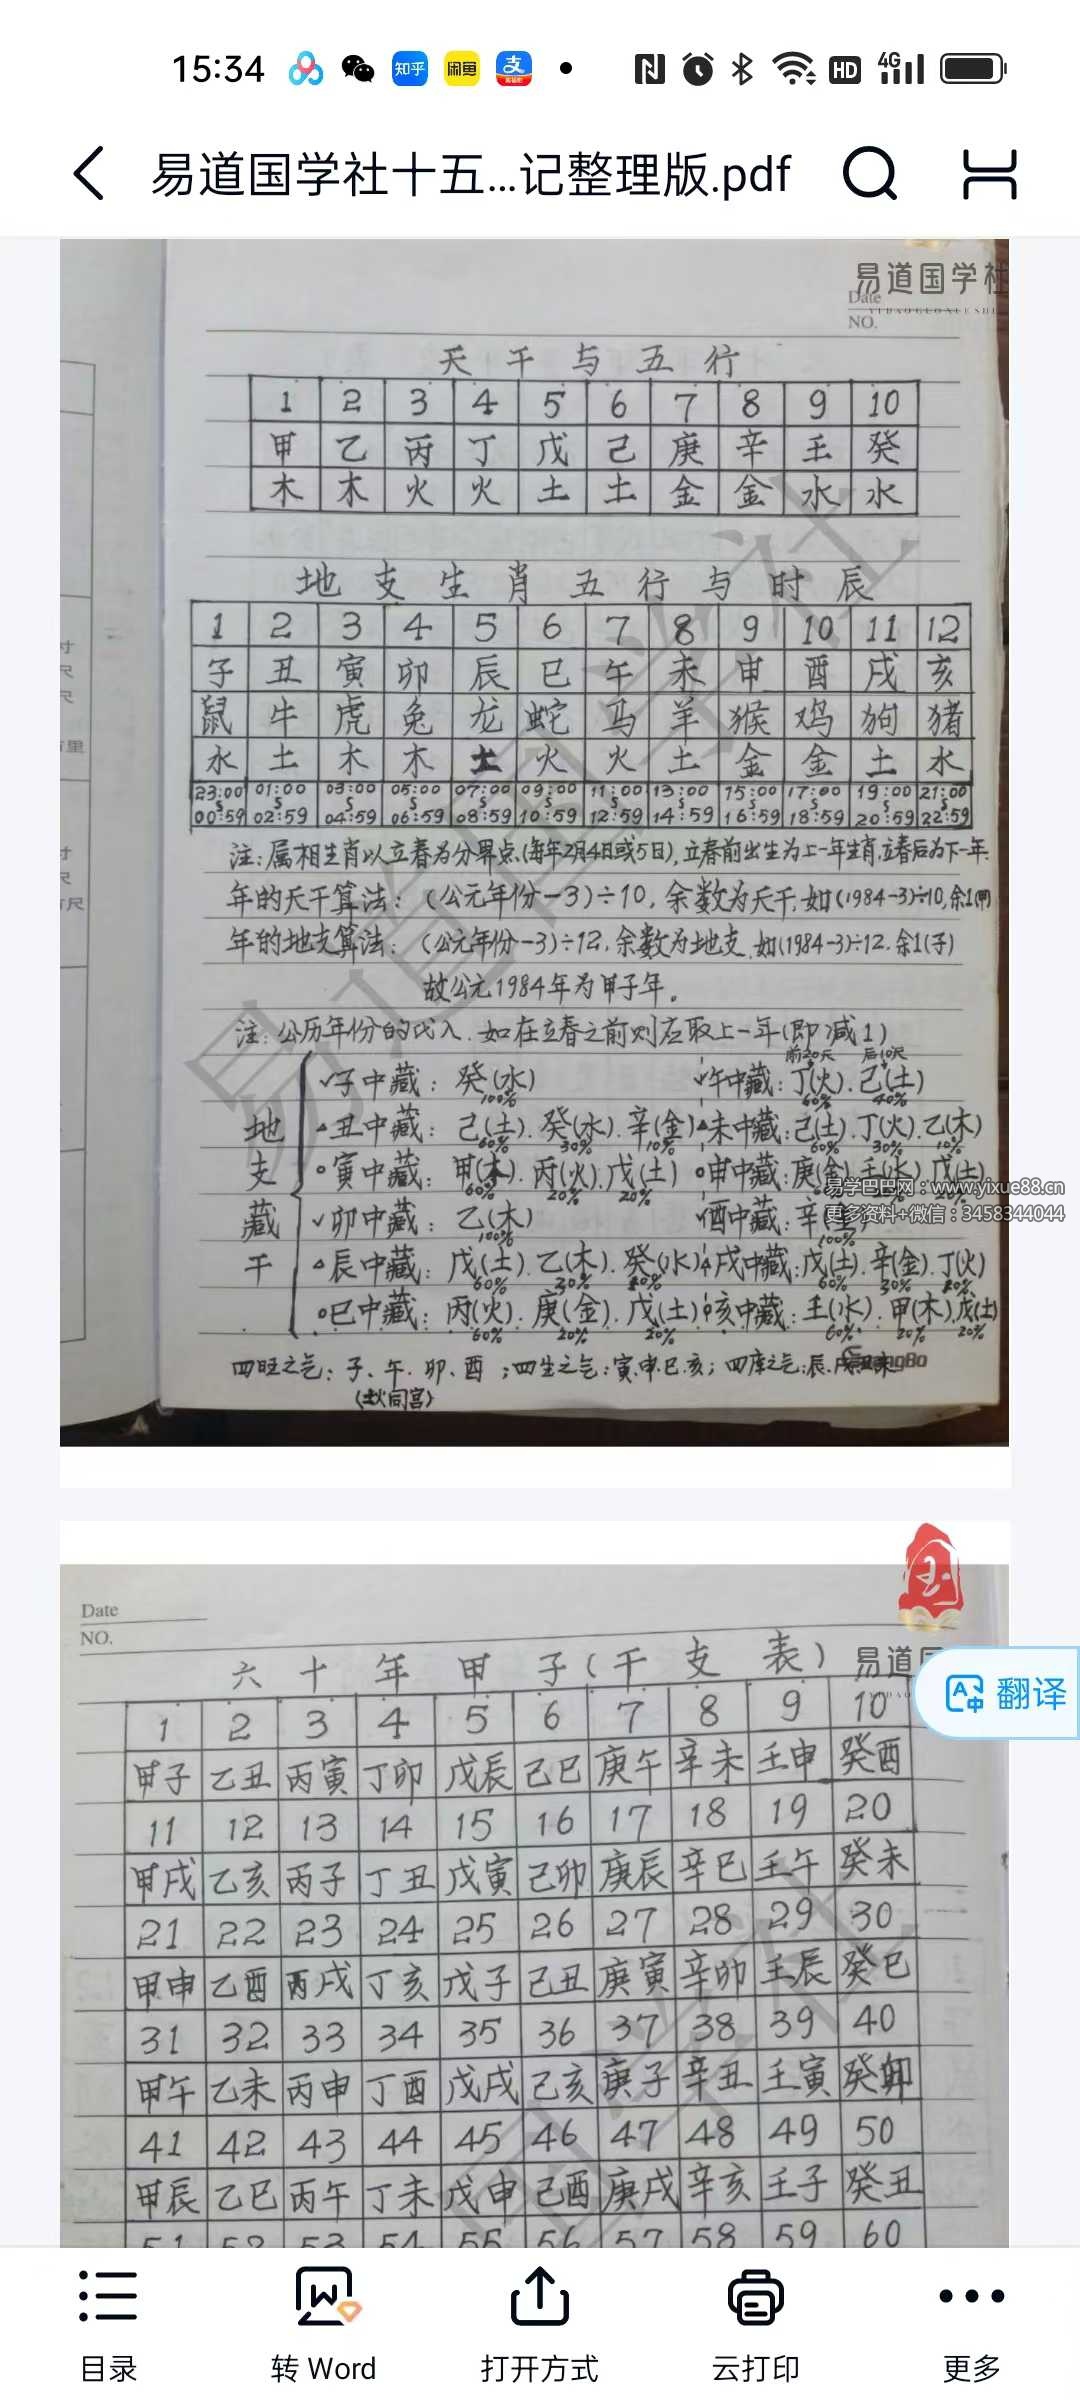 15:34 知乎 闲鱼 支 HD 4G
易道国学社十五...记整理版.pdf
易道国学社
Date
YIDAOGUOXUESHE
NO.
天干与五行
1 2 3 4 5 6 7 8 9 10
甲 乙 丙 丁 戊 己 庚 辛 壬 癸
木 木 火 火 土 土 金 金 水 水
地支生肖五行与时辰
1 2 3 4 5 6 7 8 9 10 11 12
子 丑 寅 卯 辰 巳 午 未 申 酉 戌 亥
鼠 牛 虎 兔 龙 蛇 马 羊 猴 鸡 狗 猪
水 土 木 木 土 火 火 土 金 金 土 水
23:00 01:00 03:00 05:00 07:00 09:00 11:00 13:00 15:00 17:00 19:00 21:00
00:59 02:59 04:59 06:59 08:59 10:59 12:59 14:59 16:59 18:59 20:59 22:59
注:属相生肖以立春为分界点,(每年2月4日或5日),立春前出生为上一年生肖,立春后为下一年.
年的天干算法:(公元年份-3)÷10,余数为天干,如(1984-3)÷10,余1(甲)
年的地支算法:(公元年份-3)÷12,余数为地支,如(1984-3)÷12.余1(子)
故公元1984年为甲子年。
注:公历年份的代入.如在立春之前则应取上一年(即减1)
前20天 后10天
地支藏干
√子中藏:癸(水) √午中藏:丁(火).己(土)
100% 60% 40%
△丑中藏:己(土).癸(水).辛(金) △未中藏:己(土).丁(火).乙(木)
60% 30% 10% 60% 30% 10%
○寅中藏:甲(木).丙(火).戊(土) ○申中藏:庚(金).壬(水).戊(土)
60% 20% 20%
易学巴巴网:www.yixue88.cn
更多资料+微信:3458344044
√卯中藏:乙(木) √酉中藏:辛(金)
100% 100%
△辰中藏:戊(土).乙(木).癸(水) △戌中藏:戊(土).辛(金).丁(火)
60% 30% 60% 30%
○巳中藏:丙(火).庚(金).戊(土) ○亥中藏:壬(水).甲(木).戊(土)
60% 20% 20% 60% 20% 20%
四旺之气:子、午.卯、酉;四生之气:寅.申.巳.亥;四库之气:辰.戌.丑.未
易道国学社
Date
NO.
六十年甲子(干支表)
易道国
1 2 3 4 5 6 7 8 9 10
甲子 乙丑 丙寅 丁卯 戊辰 己巳 庚午 辛未 壬申 癸酉
11 12 13 14 15 16 17 18 19 20
甲戌 乙亥 丙子 丁丑 戊寅 己卯 庚辰 辛巳 壬午 癸未
21 22 23 24 25 26 27 28 29 30
甲申 乙酉 丙戌 丁亥 戊子 己丑 庚寅 辛卯 壬辰 癸巳
31 32 33 34 35 36 37 38 39 40
甲午 乙未 丙申 丁酉 戊戌 己亥 庚子 辛丑 壬寅 癸卯
41 42 43 44 45 46 47 48 49 50
甲辰 乙巳 丙午 丁未 戊申 己酉 庚戌 辛亥 壬子 癸丑
51 52 53 54 55 56 57 58 59 60
国学社
翻译
目录 转 Word 打开方式 云打印 更多